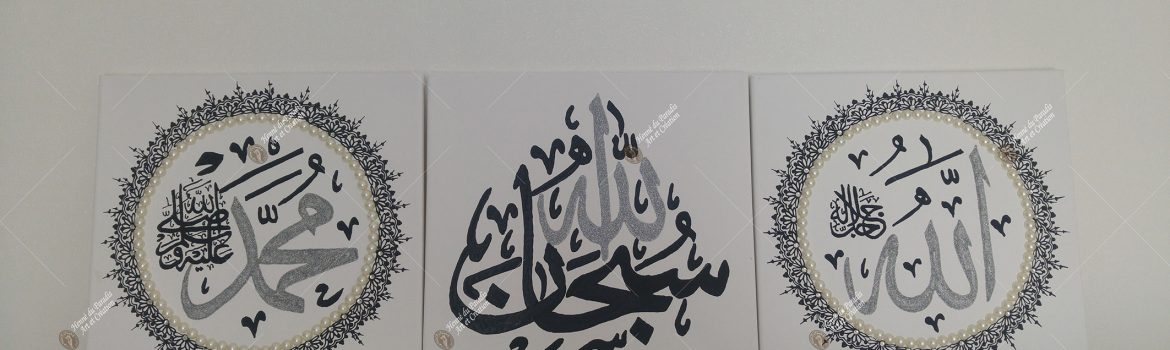 الله
جل جلاله
سبحان الله
محمد
صلى الله عليه وسلم
Henné du Paradis
Art et Création